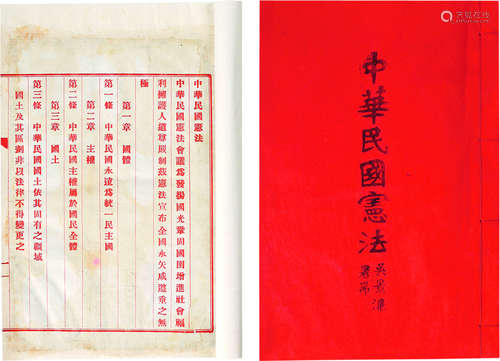 中華民國憲法
中華民國憲法會議爲發揚國光鞏固國圉增進社會福
利擁護人道尊嚴制茲憲法宣布全國永矢咸遵垂之無
極
第一章 國體
第一條 中華民國永遠爲統一民主國
第二章 主權
第二條 中華民國主權屬於國民全體
第三章 國土
第三條 中華民國國土依其固有之疆域
國土及其區劃非以法律不得變更之
中華民國憲法
吳景濂
署耑